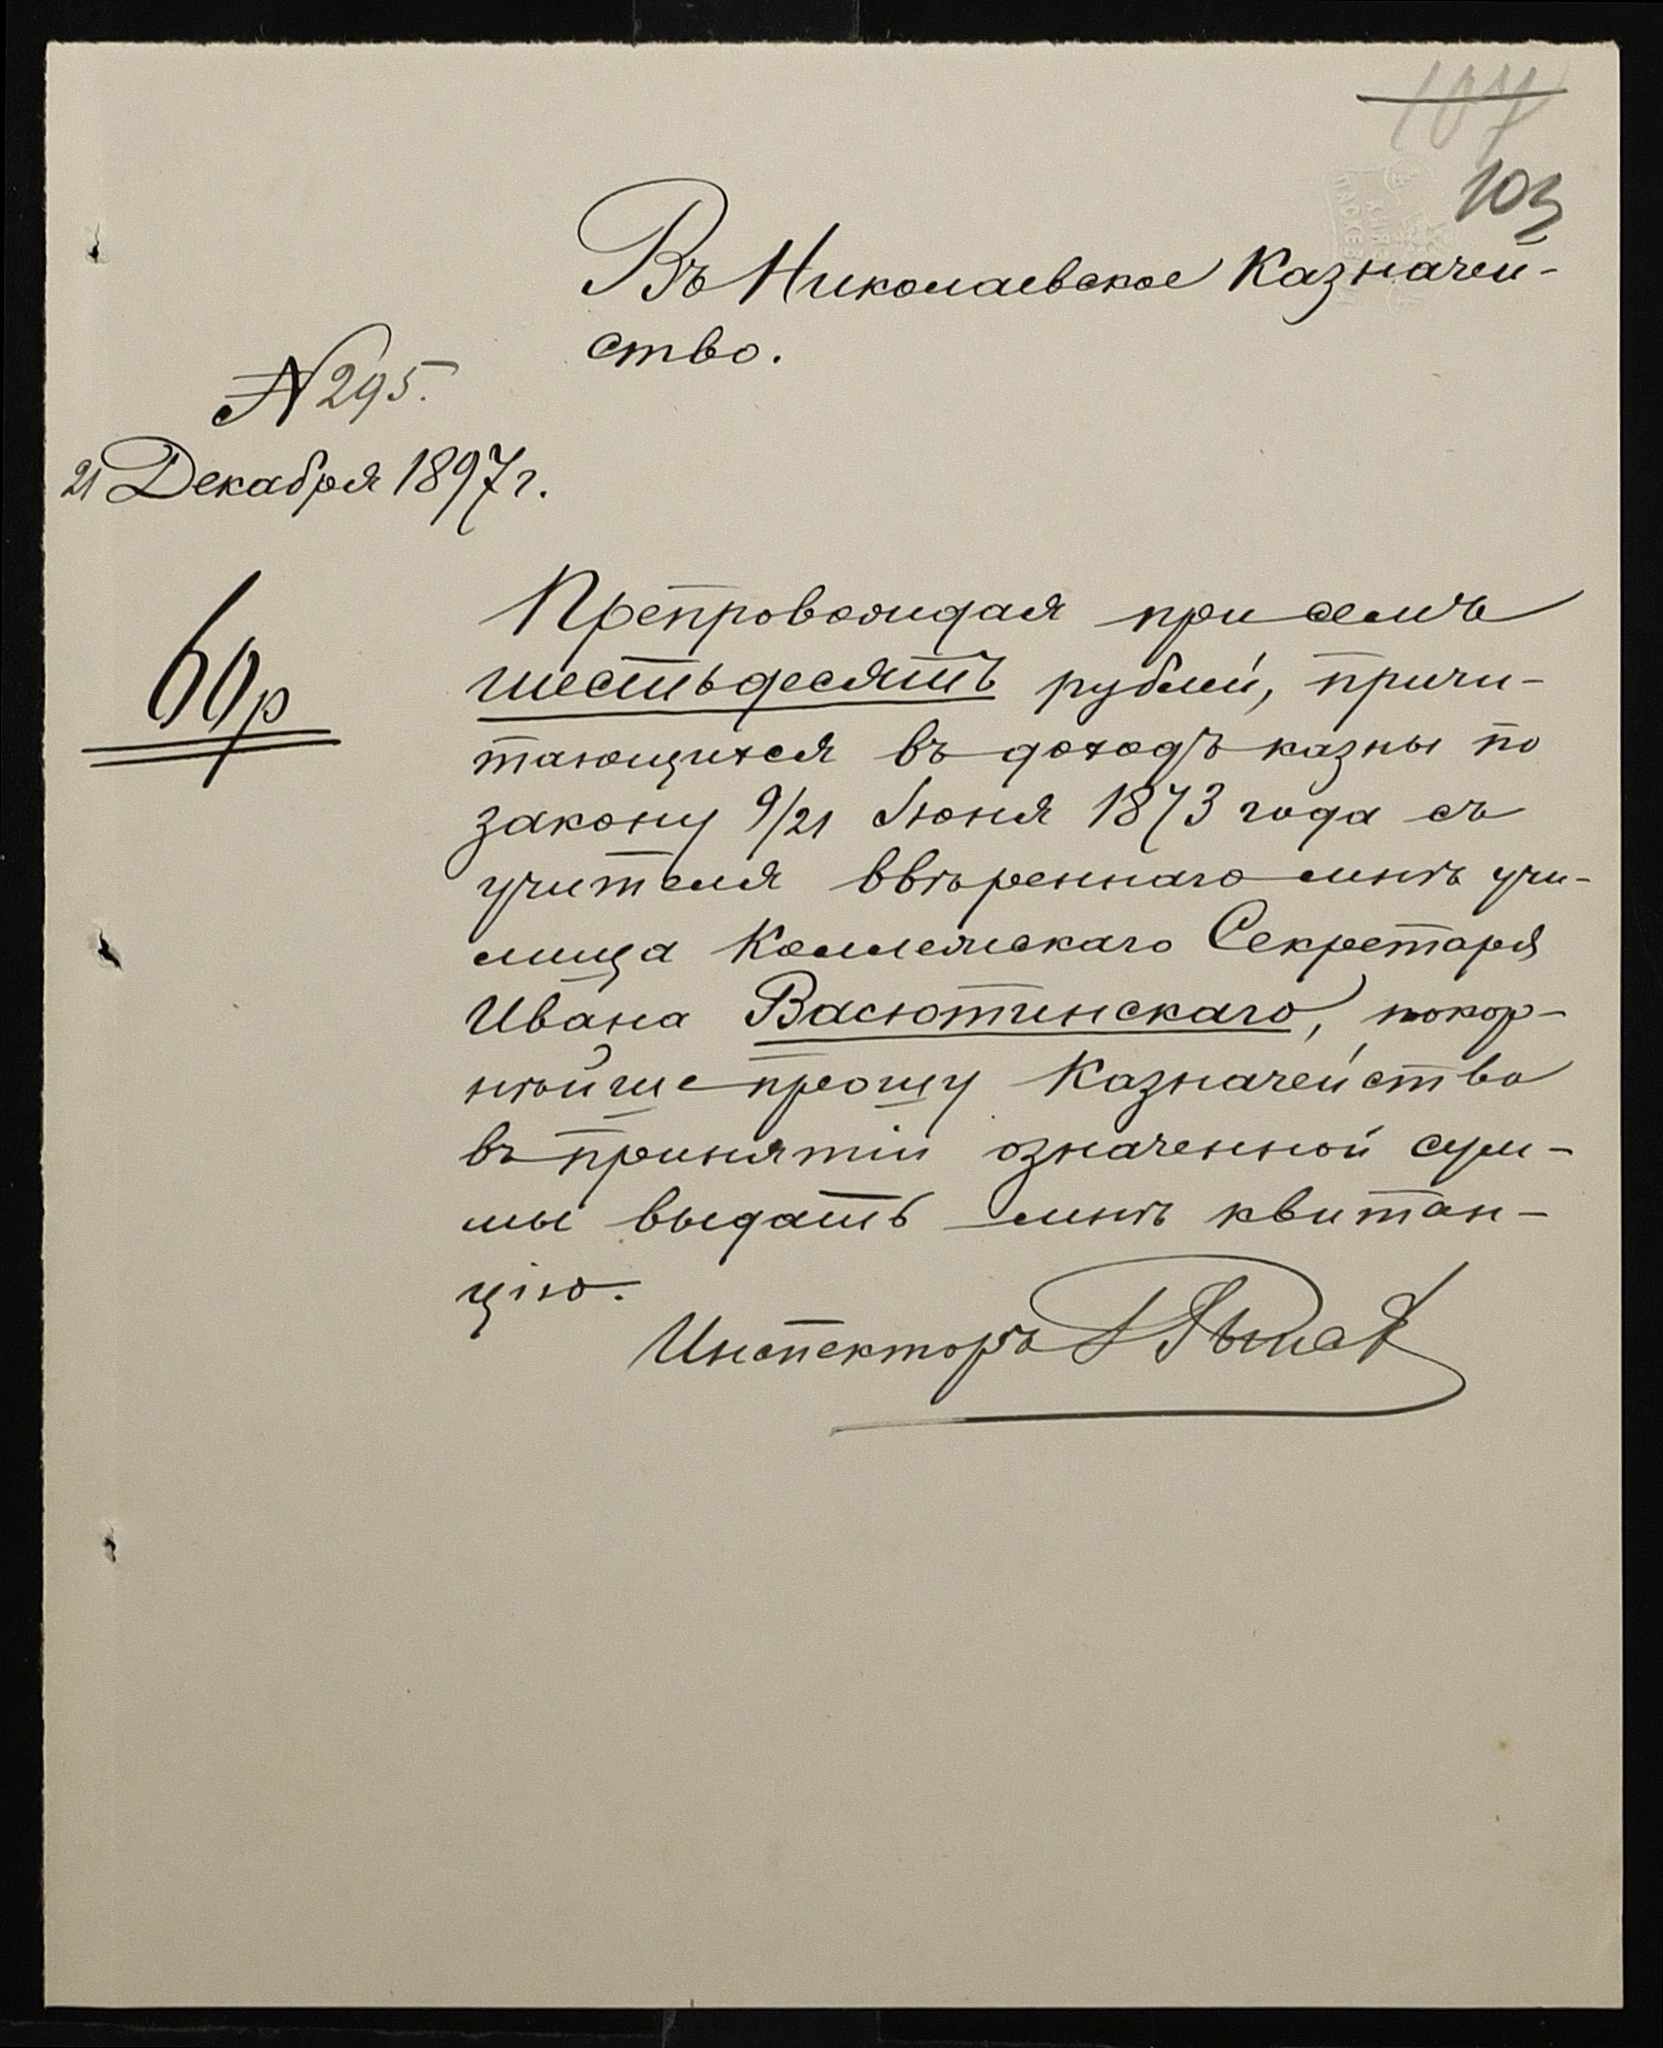 107
103
Въ Николаевское Казначей-
ство.
№ 295.
21 Декабря 1897 г.
60 р
Препровождая при семъ
шестьдесятъ рублей, причи-
тающихся въ доходъ казны по
закону 9/21 Iюня 1873 года съ
учителя ввѣреннаго мнѣ учи-
лища Коллежскаго Секретаря
Ивана Васютинскаго, покор-
нѣйше прошу Казначейство
въ принятіи означенной сум-
мы выдать мнѣ квитан-
цію.
Инспекторъ